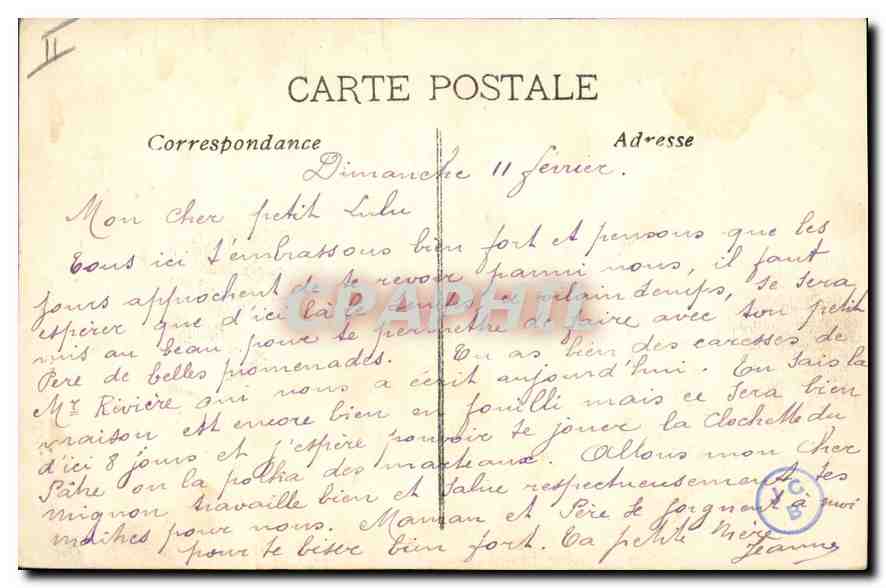 II
CARTE POSTALE
Correspondance
Adresse
Dimanche 11 février.
Mon cher petit Lulu
Tous ici t'embrassons bien fort et pensons que les
jours approchent de te revoir parmi nous, il faut
espérer que d'ici là le temps, ce vilain temps, se sera
mis au beau pour te permettre de faire avec ton petit
Père de belles promenades. Tu as bien des caresses de
Mr Rivière qui nous a écrit aujourd'hui. Tu sais la
maison est encore bien en fouilli mais ce sera bien
d'ici 8 jours et j'espère pouvoir te jouer la Clochette du
Pâtre ou la polka des marteaux. Allons mon cher
mignon travaille bien et salue respectueusement tes
maîtres pour nous. Maman et Père se joignent à moi
pour te biser bien fort. Ta petite Mère
Jeanne
CPAPHIL